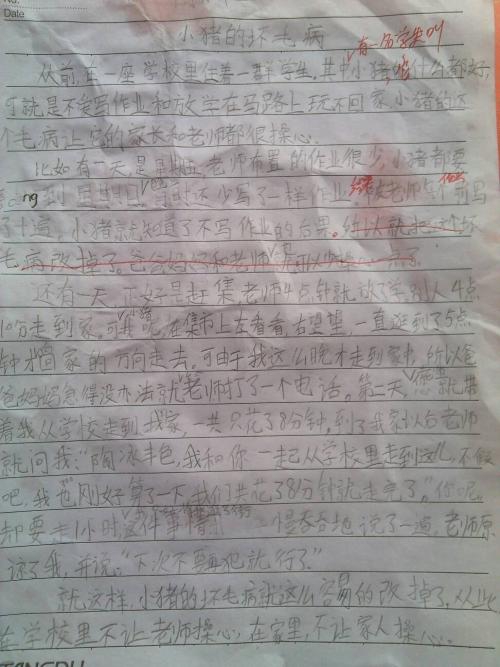 No.
Date
小猪的坏毛病
有一历学生叫
从前,在一座学校里住着一群学生,其中小猪,啥什么都好,
可就是不爱写作业和放学在马路上玩不回家,小猪的这
个毛病让它的家长和老师都很操心。
比如有一天,是星期五,老师布置的作业很少,小猪都要
ng到星期日,当时还少写了一样作业 老师
了十遍,小猪就知道了不写作业的后果。所以就把这个坏
毛病改掉了。爸爸妈妈和老师
还有一天,正好是赶集,老师4点钟就放了学,别人4点
10分走到家。可我呢,在集市上左看看,右望望,一直逛到了5点
钟才回家的方向走去,可由于我这么晚才走到家中,所以爸
爸妈妈急得没办法就给老师打了一个电话。第二天,就带
着我从学校走到我家,一共只花了8分钟,到了我家以后老师
就问我:“陶冰丰色,我和你一起从学校里走到这儿,不假
吧,我也刚好算了一下,我们共花了8分钟就走完了。”你呢,
却要走1小时,这件事情 慢吞吞地说了一遍,老师原
谅了我,并说:“下次不要再犯就行了”
就这样,小猪的坏毛病就这么容易的改掉了,从此
在学校里不让老师操心,在家里,不让家人操心。